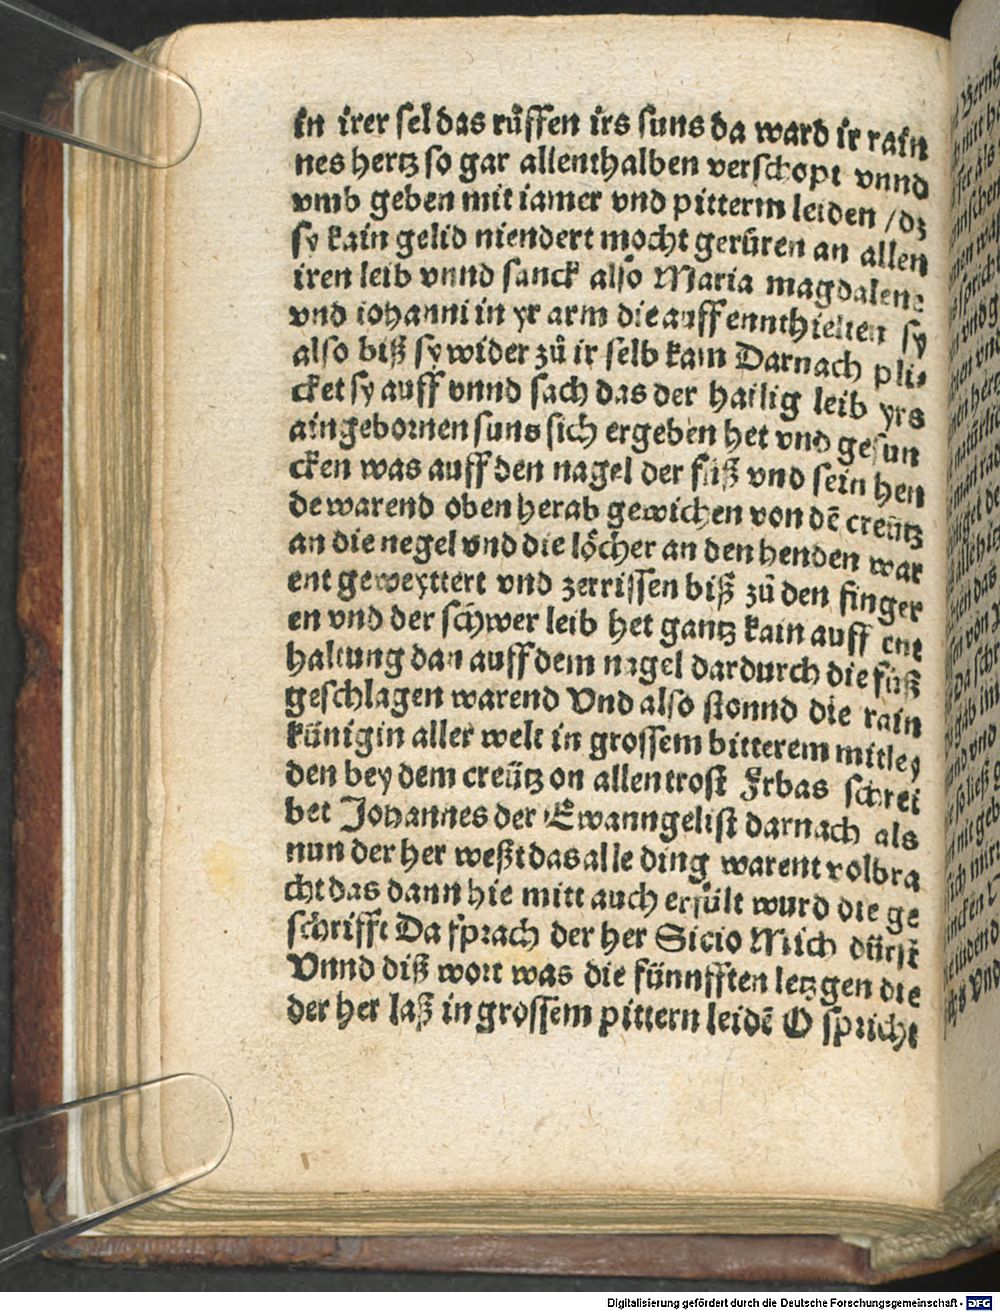 in irer sel das rüffen irs suns da ward ir rain
nes hertz so gar allenthalben verschopt vnnd
vmb geben mit iamer vnd pitterm leiden / dz
sy kain gelid niendert mocht gerüren an allen
iren leib vnnd sanck also Maria magdalene
vnd iohanni in yr arm die auff ennthielten sy
also biß sy wider zů ir selb kam Darnach pli⸗
cket sy auff vnnd sach das der hailig leib yrs
aingebornen suns sich ergeben het vnd gesun
cken was auff den nagel der füß vnd sein hen
de warend oben herab gewichen von dē creütz
an die negel vnd die löcher an den henden war
ent geweyttert vnd zerrissen biß zů den finger
en vnd der schwer leib het gantz kain auff ent
haltung dan auff dem nagel dardurch die füß
geschlagen warend Vnd also stonnd die rain
künigin aller welt in grossem bitterem mitley
den bey dem creütz on allen trost Frbas schrei
bet Johannes der Ewanngelist darnach als
nun der her weßt das alle ding warent volbra
cht das dann hie mitt auch erfült wurd die ge
schrifft Da sprach der her Sicio Mich dürst
Vnnd diß wort was die fünnfften letzgen die
der her laß in grossem pittern leidē O spricht
Digitalisierung gefördert durch die Deutsche Forschungsgemeinschaft - DFG